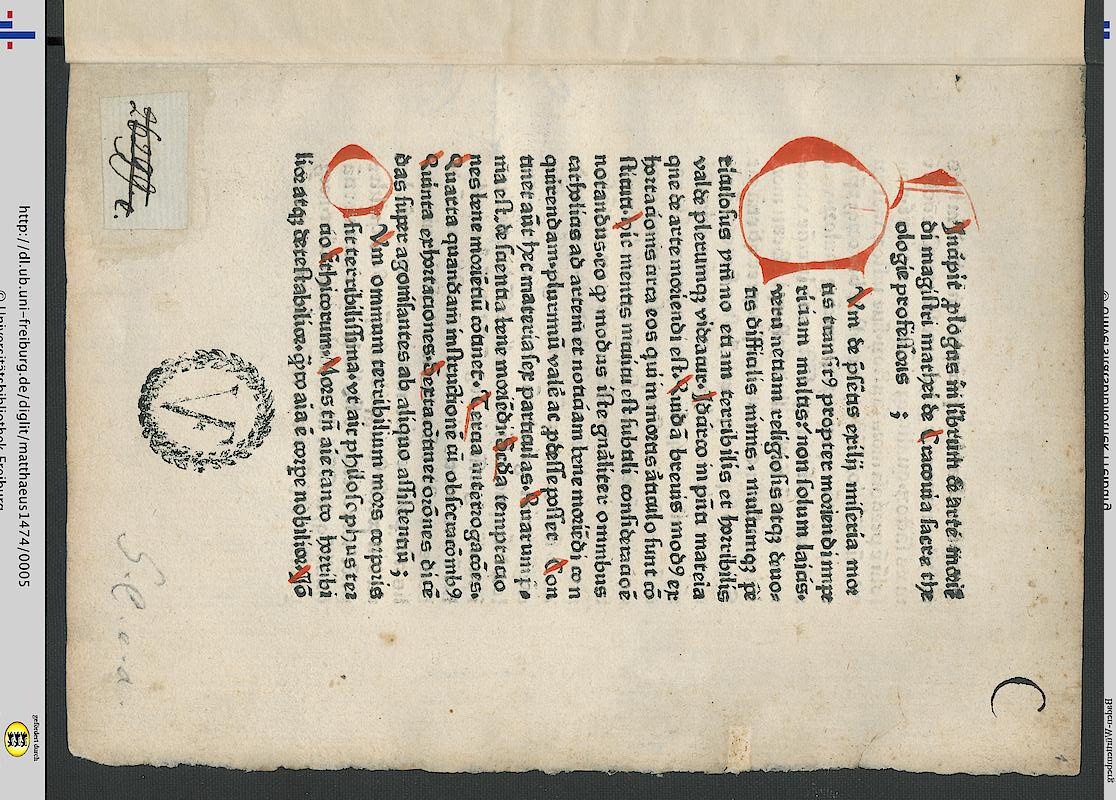 Incipit ꝓlogus in librum de arte moriē
di magistri mathei de Cracouia sacre the
ologie professoris ;
Cum de p̄sētis exilij miseria mor
tis transitꝰ propter moriendi impe
riciam multis nō solum laicis
veru ne tiam religiosis atqꝫ deuo
tis difficilis nimis. multumqꝫ pe
riculosus pm̄o etiam terribilis et horribilis
valde plerumqꝫ videatur. Idcirco in pn̄ti mateia
que de arte moriendi est. Quedā breuis modꝰ ex
hortacionis circa eos qui in mortis articulo sunt cō
stituti. hic mentis intuitu est subtili consideracōe
notandus. eo ꝙ modus iste gn̄aliter omnibus
catholicis ad artem et noticiam bene moriēdi con
quirendam. plurimū valēt ac ꝓdesse posset Con
tinet aūt hec materia sex particulas. Quarum pͥ
ma est. de scientia bene moriēdi Scd̄a temptacio
nes bene morientiū cōtinet. Tercia interrogacōes.
Quarta quandam instructionē cū obsecracōibꝰ
Quinta exhortaciones. Sexta cōtinet orōnes dicē
das super agonisantes ab aliquo assistentiū ;
Cum omnium terribilium mors corporis
sit terribilissima. vt ait philosophus ter
cio Ethicorum. Mors tn̄ aīe tanto horribi
lior atqꝫ detestabilior. qͣnto aīa ē corpe nobilior. Vn̄
S. l. e. a.
http://dl.ub.uni-freiburg.de/diglit/matthaeus1474/0005
© Universitätsbibliothek Freiburg
gefördert durch